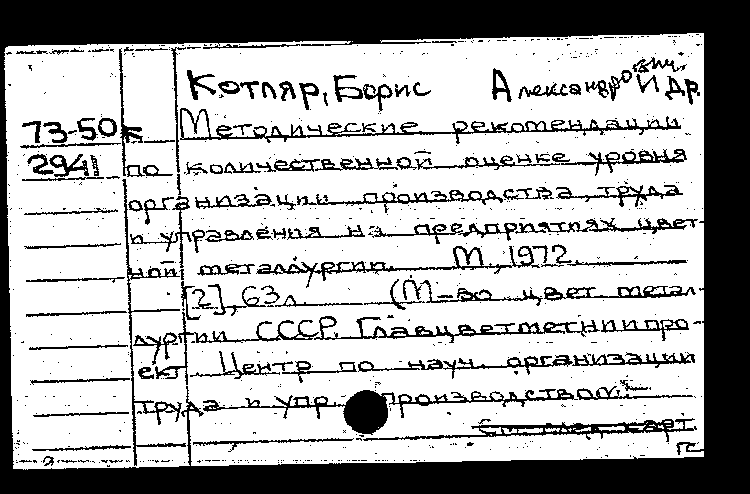 Котляр, Борис Александрович и др.
73-50к Методические рекомендации
2941 по количественной оценке уровня
организации производства, труда
и управления на предприятиях цвет-
ной металлургии. М., 1972.
[2], 63л. (М-во цвет. метал-
лургии СССР. Главцветметниипро-
ект. Центр по науч. организации
труда и упр. производством.
См. след. карт.